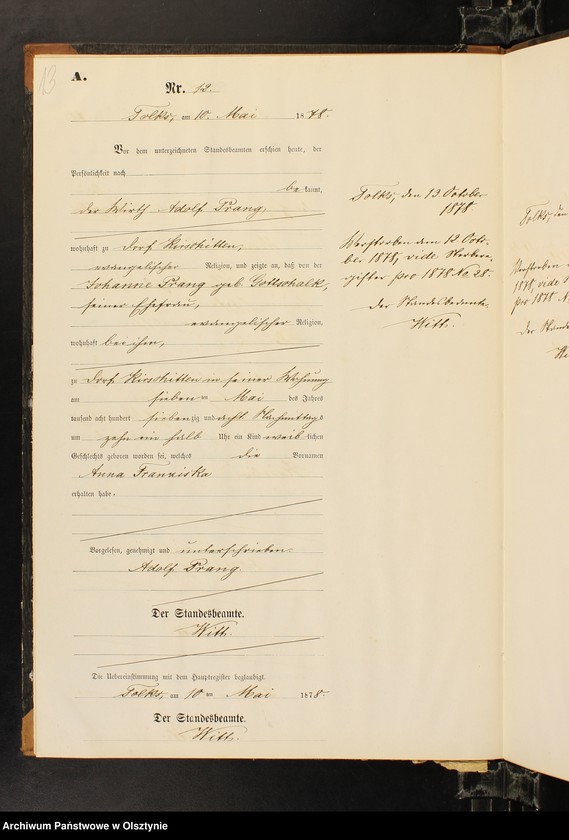 13
A.
Nr. 12.
Tolks, am 10. Mai 1878.
Vor dem unterzeichneten Standesbeamten erschien heute, der
Persönlichkeit nach
be kannt,
der Wirth Adolf Prang,
wohnhaft zu Dorf Kirschitten,
evangelischer Religion, und zeigte an, daß von der
Johanne Prang geb. Gottschalk,
seiner Ehefrau,
evangelischer Religion,
wohnhaft bei ihm,
zu Dorf Kirschitten in seiner Wohnung
am sieben ten Mai des Jahres
tausend acht hundert siebenzig und acht Nachmittags
um zehn ein halb Uhr ein Kind weib lichen
Geschlechts geboren worden sei, welches die Vornamen
Anna Franziska
erhalten habe.
Vorgelesen, genehmigt und unterschrieben.
Adolf Prang.
Der Standesbeamte.
Witt.
Die Uebereinstimmung mit dem Hauptregister beglaubigt.
Tolks, am 10 ten Mai 1878.
Der Standesbeamte.
Witt.
Tolks, den 13. October
1878
Verstorben am 12. Octo-
ber 1878, vide Sterbere-
gister pro 1878 No. 28.
der Standesbeamte.
Witt.
Tolks, den
Verstorben
1878, vide
pro 1878 N.
der Stand
Wi
Archiwum Państwowe w Olsztynie